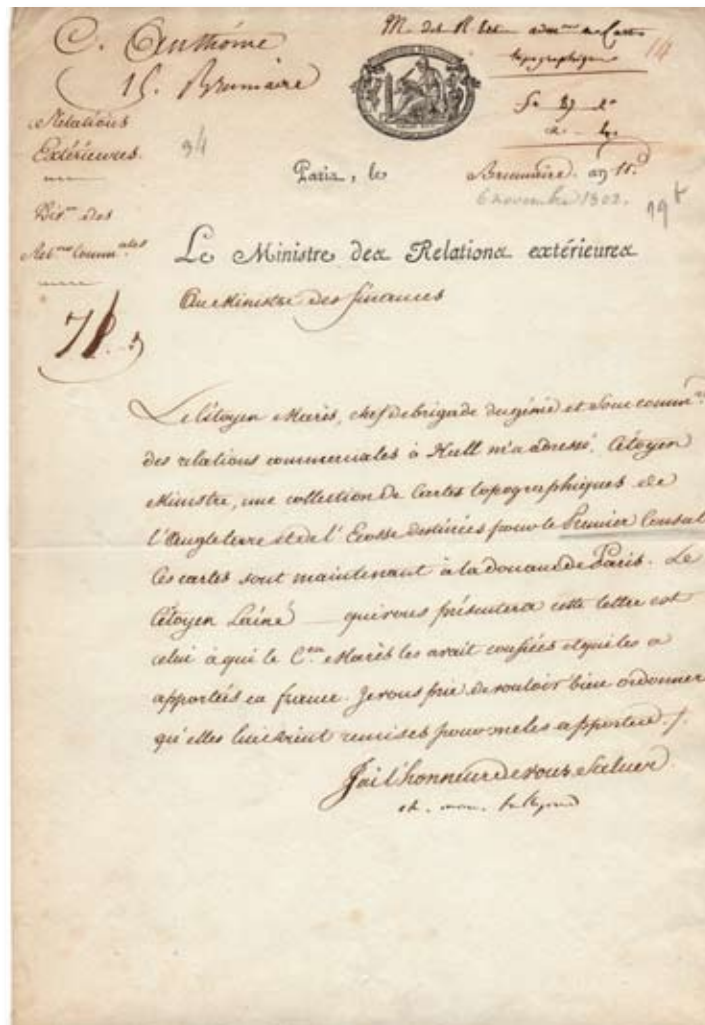 C. Anthôme
15. Brumaire
M. des R. Ext.
topographiques
14
Relations
Extérieures.
34
Paris, le
Brumaire. an 11.
6 novembre 1802.
19t
Div.on des
Rel.ons Comm.ales
Le Ministre des Relations extérieures
Au Ministre des finances
Le Citoyen Marès, chef de brigade du génie et Sous comm.re
des relations commerciales à Hull m'a adressé, Citoyen
Ministre, une collection de Cartes topographiques de
l'Angleterre et de l'Ecosse destinées pour le Premier Consul
Ces cartes sont maintenant à la douane de Paris. Le
Citoyen Lainé qui vous présentera cette lettre est
celui à qui le C.en Marès les avait confiées et qui les a
apportées en france. Je vous prie de vouloir bien ordonner
qu'elles lui soient remises pour me les apporter./.
J'ai l'honneur de vous Saluer.
ch. mau. talleyrand